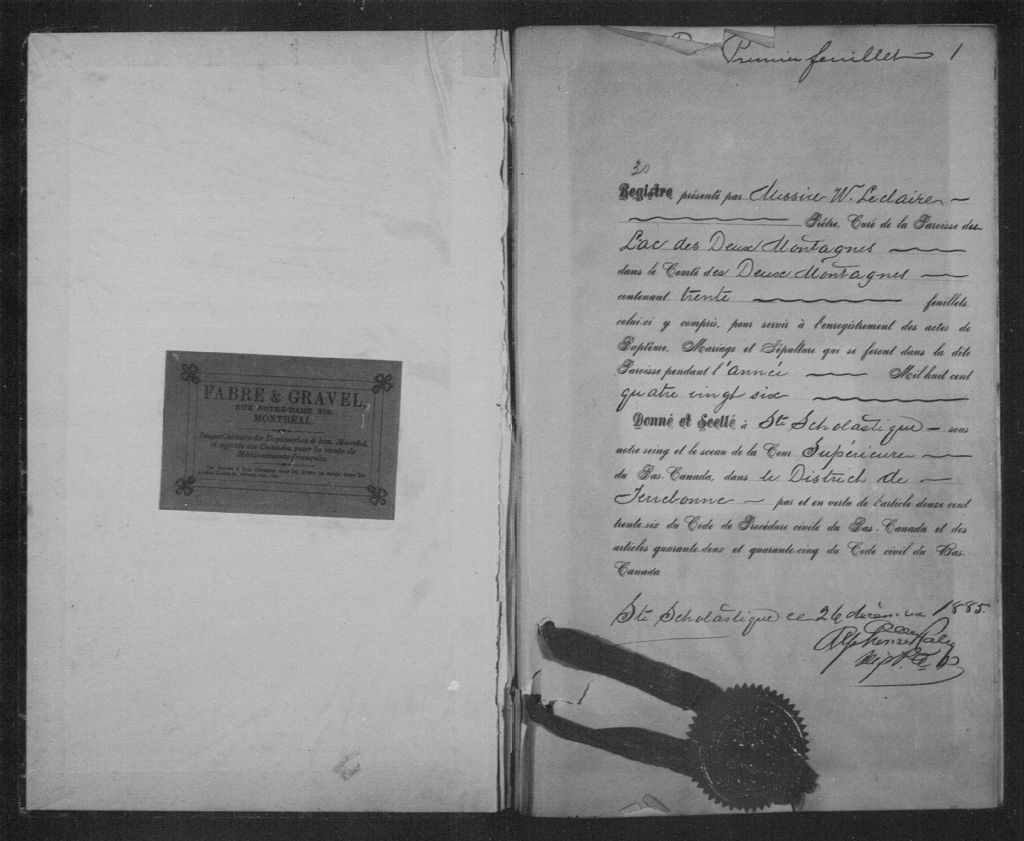 FABRE & GRAVEL,
RUE NOTRE-DAME 219,
MONTRÉAL.
Importateurs de Tapisseries à bon Marché,
et agents au Canada pour la vente de
Médicaments français.
Premier feuillet 1
30
Registre présenté par Messire W. Leclaire
Prêtre, Curé de la Paroisse des
Lac des Deux Montagnes
dans le Comté des Deux Montagnes
contenant trente feuillets,
celui-ci y compris, pour servir à l'enregistrement des actes de
Baptême, Mariage et Sépulture qui se feront dans la dite
Paroisse pendant l'année Mil huit cent
quatre vingt six
Donné et Scellé à Ste Scholastique sous
notre seing et le sceau de la Cour Supérieure
du Bas-Canada, dans le District de
Terrebonne par et en vertu de l'article douze cent
trente-six du Code de Procédure civile du Bas-Canada et des
articles quarante-deux et quarante-cinq du Code civil du Bas-
Canada
Ste Scholastique ce 26 décembre 1885.
Alphonse